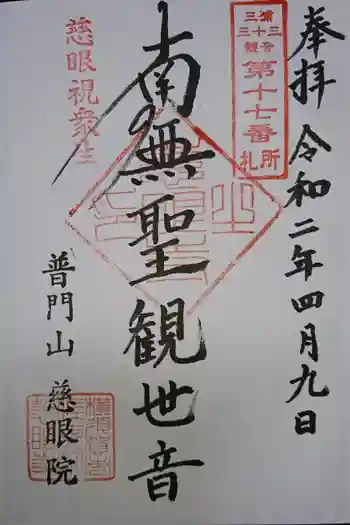 奉拝 令和二年四月九日
三浦
三十三
観音
第十七番
札所
南無聖観世音
慈眼視衆生
普門山 慈眼院